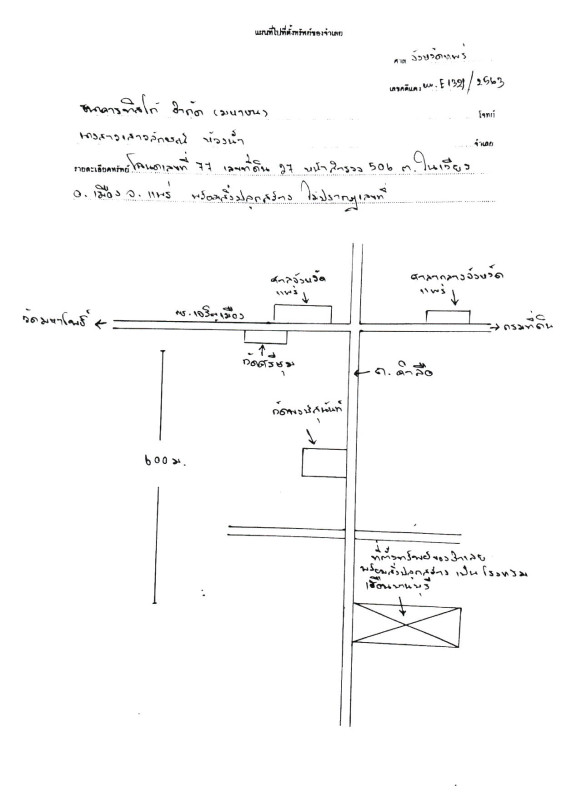 แผนที่ไปที่ตั้งทรัพย์ของจำเลย
ศาล จังหวัดแพร่
เลขคดีแดง ผบ.E1321/2563
ธนาคารทิสโก้ จำกัด (มหาชน) โจทก์
นางสาวเสาวลักษณ์ จำเลย
รายละเอียดทรัพย์ โฉนดเลขที่ 77 เลขที่ดิน 27 หน้าสำรวจ 506 ต. ในเวียง
อ. เมือง จ. แพร่ พร้อมสิ่งปลูกสร้าง ไม่ปรากฏเลขที่
ศาลจังหวัด
แพร่
ศาลากลางจังหวัด
แพร่
วัดมหาโพธิ์
ถ. เจริญเมือง
กรมที่ดิน
วัดศรีชุม
ถ. คำลือ
วัดพงษ์สุนันท์
600 ม.
ที่ตั้งทรัพย์ของจำเลย
พร้อมสิ่งปลูกสร้าง เป็น โรงแรม